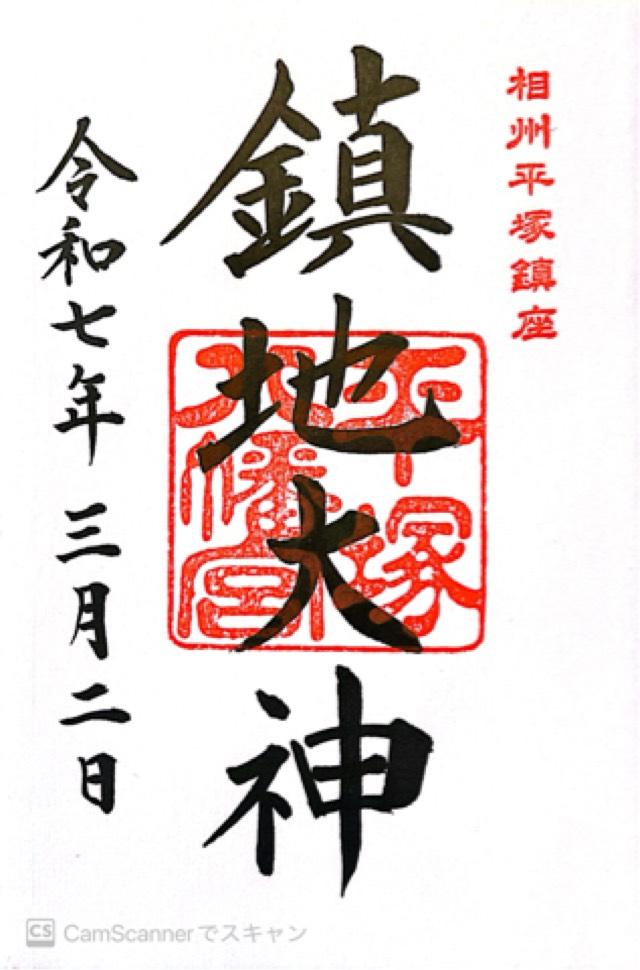 相州平塚鎮座
鎮地大神
平塚
八幡宮
令和七年 三月二日
CS CamScannerでスキャン